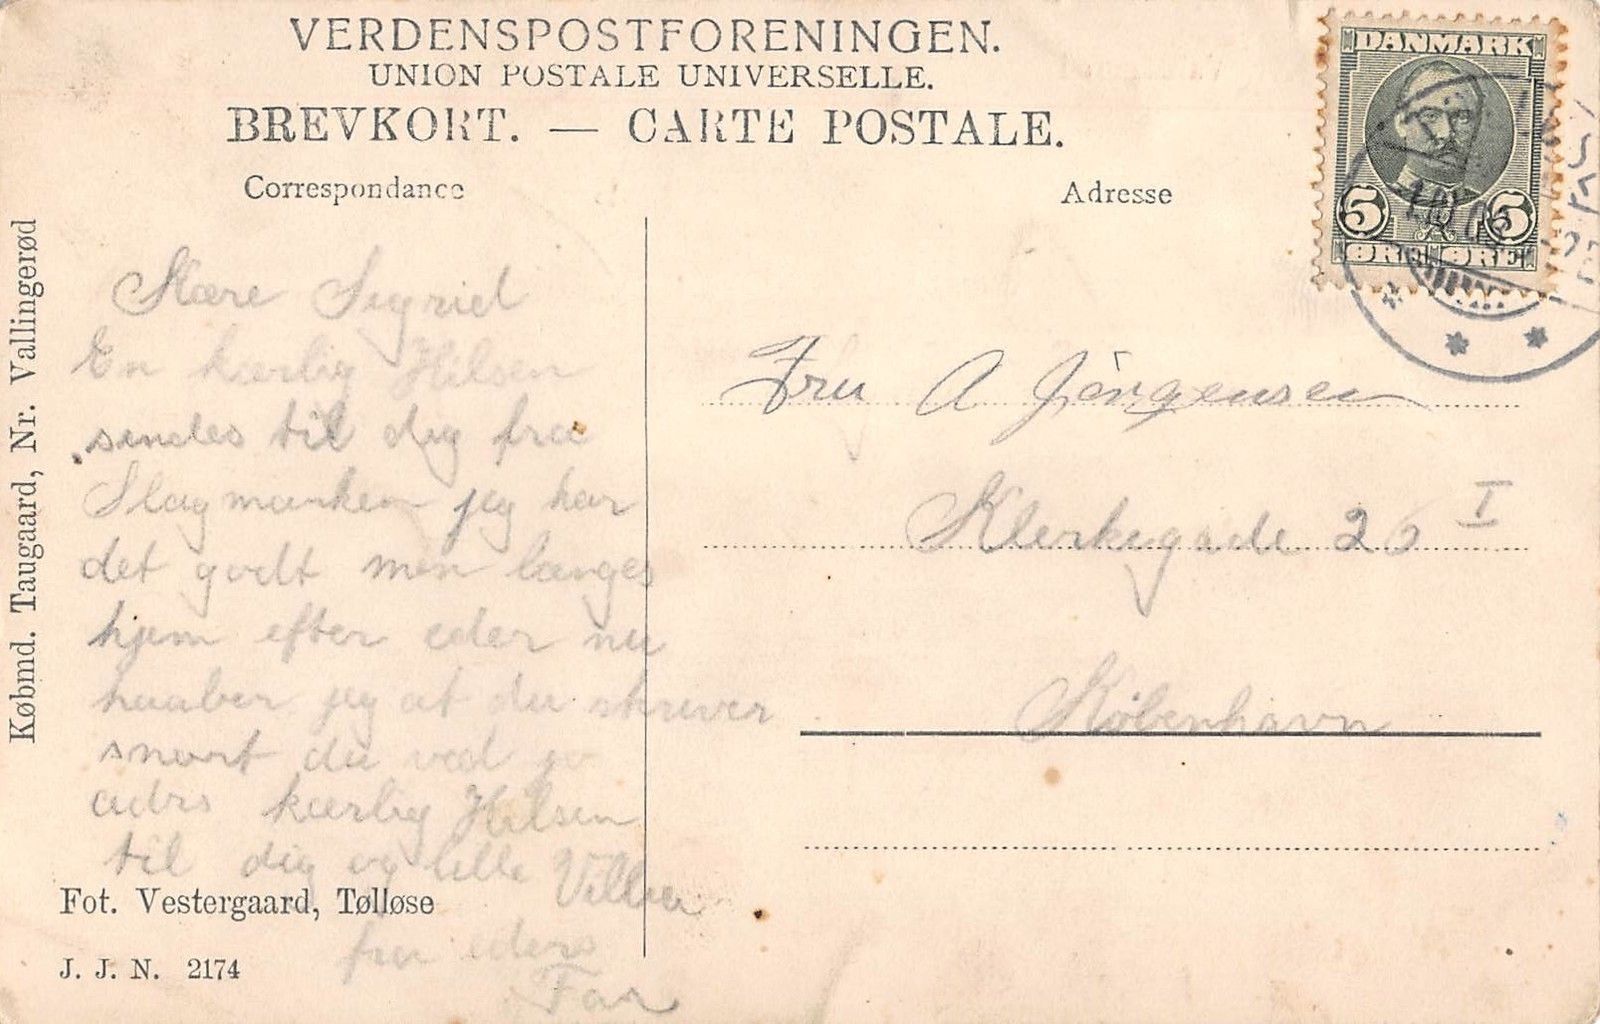 VERDENSPOSTFORENINGEN.
UNION POSTALE UNIVERSELLE.
BREVKORT. — CARTE POSTALE.
Correspondance
Adresse
DANMARK
5 5
ØRE ØRE
Købmd. Taugaard, Nr. Vallingerød
Kære Sigrid
En kærlig Hilsen
sendes til dig fra
Slagmarken jeg har
det godt men længes
hjem efter eder nu
haaber jeg at du skriver
snart du ved jo
adrs kærlig Hilsen
til dig og lille
fra eders
Far
Fru A Jörgensen
Klerkegade 26 I
København
Fot. Vestergaard, Tølløse
J. J. N. 2174